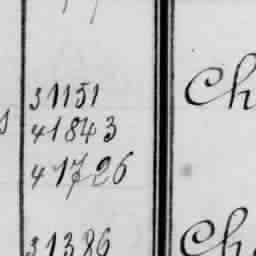 31151 Ch
41843
41726
31386 Ch